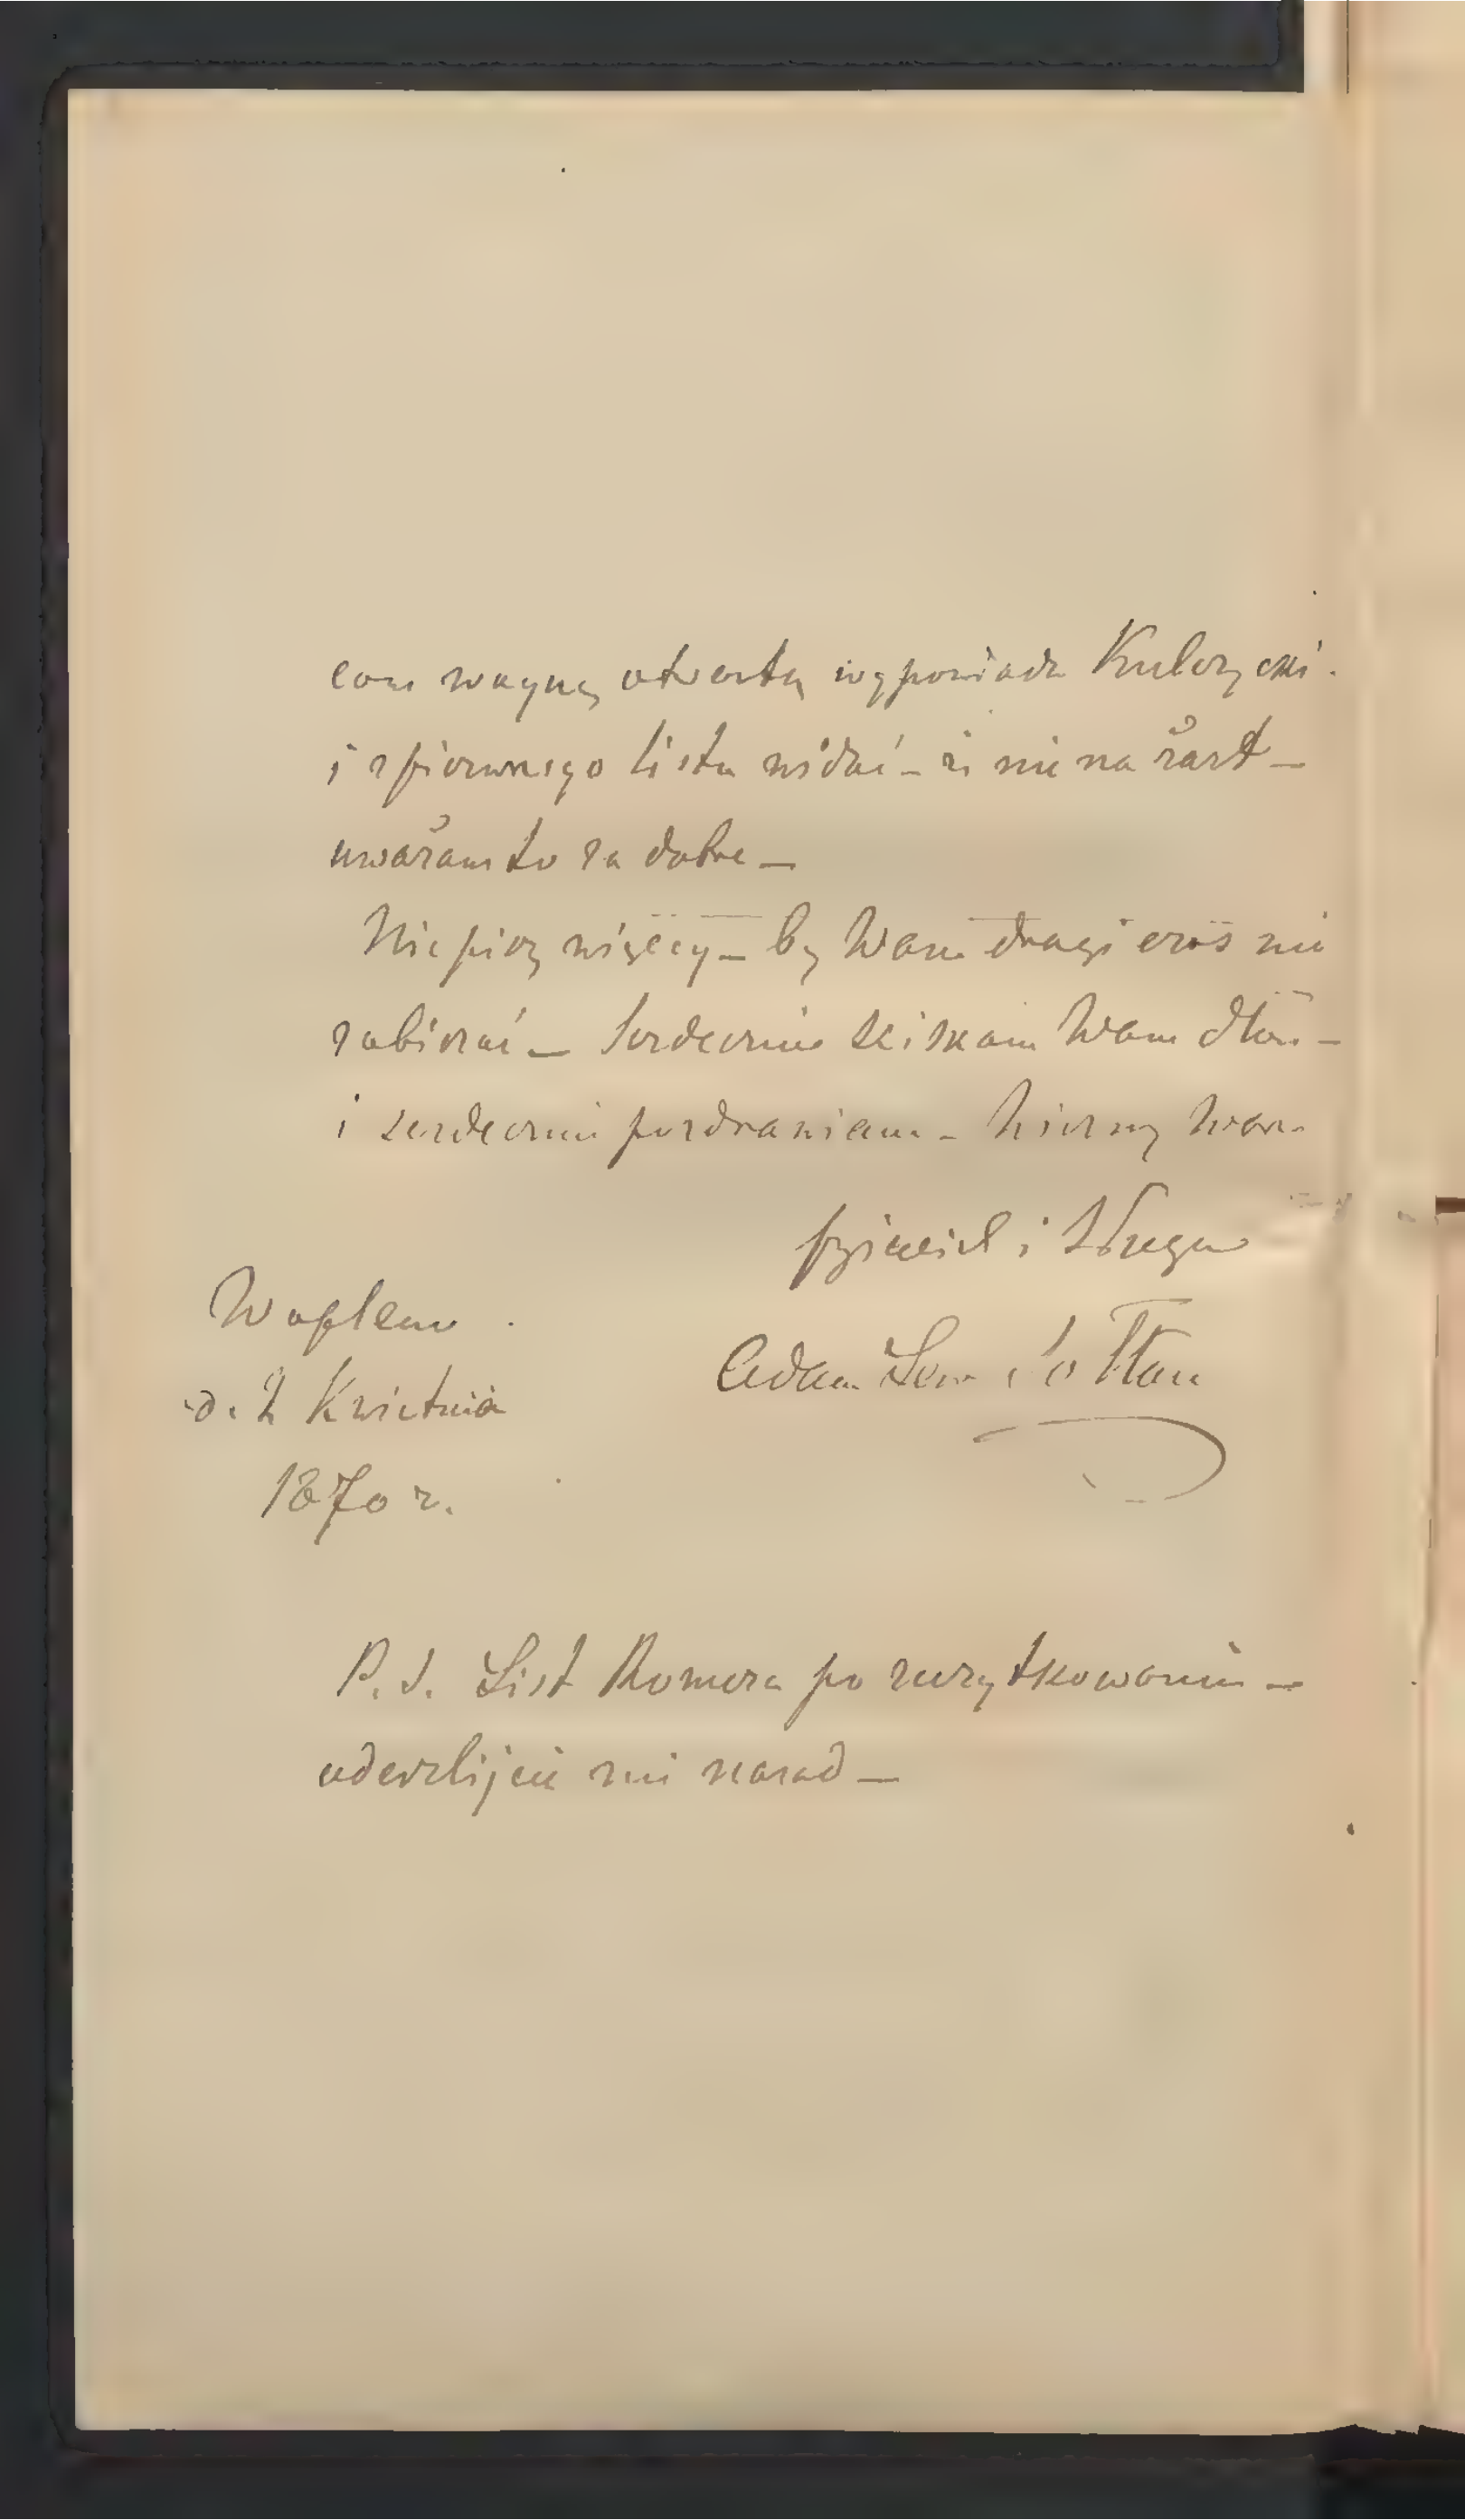 wojnę otwartą wypowiada Kulczycki.
i z pierwszego listu widać – że nie na żart –
uważam to za dobre –
Nie piszę więcéj – by Wam drogi czas nie
zabierać – Serdecznie ściskam Wam dłoń –
i serdecznie pozdrawiam – Wierny Wam
przyjaciel i Sługa
Adam Lew Sołtan
Waplewo.
d. 2 Kwietnia
1870 r.
P. S. List Romera po zużytkowaniu –
odeszlijcie mi nazad –